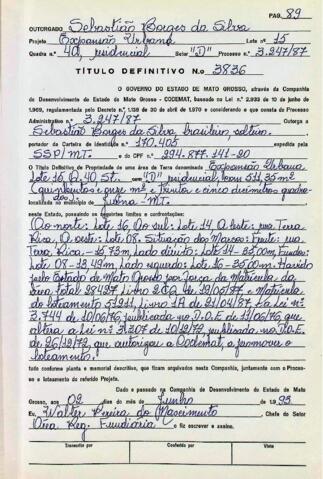 PAG. 89
OUTORGADO Sebastião Borges da Silva
Projeto Expansão Urbana Lote n.º 15
Quadra n.º 40, residencial Setor "D" Processo n.º 3.247/87
TÍTULO DEFINITIVO N.º 3836
O GOVERNO DO ESTADO DE MATO GROSSO, através da Companhia
de Desenvolvimento do Estado de Mato Grosso - CODEMAT, baseado na Lei n.º 2.933 de 10 de junho
de 1969, regulamentada pelo Decreto n.º 1.138 de 30 de abril de 1970 e considerando o que consta do Processo
Administrativo n.º 3.247/87 Outorga a
Sebastião Borges da Silva, brasileiro, solteiro.
portador da Carteira de Identidade n.º 170.405 expedida pela
SSP/MT. e do CPF n.º 294.877.141-20
O Título Definitivo de Propriedade de uma Área de Terra denominada Expansão Urbana
Lote 15, Q. 40 St. "D" residencial, 511,35 m²
(quinhentos e onze m² e trinta e cinco decímetros quadra-
dos). localizada no município de Juína - MT.
neste Estado, possuindo os seguintes limites e confrontações:
(Ao norte: Lote 16, Ao sul: Lote 14, A leste: rua Terra
Rica, A oeste: Lote 08. Situação dos Marcos: Frente: rua
Terra Rica - 15,73 m, Lado direito: Lote 14 - 35,00m, Fundos:
Lote 08 - 13,49m Lado esquerdo: Lote 16 - 35,00m. Havido
pelo Estado de Mato Grosso por força da Matrícula da
área total 28427, Livro 2CQ de 19/05/77 e Matrícula
do loteamento 51211, Livro 1A de 21/04/87. La Lei n.º
3.744 de 10/06/76, publicada no D.O.E de 11/06/76 que
altera a Lei n.º 3.307 de 10/12/72, publicada no D.O.E.
de 26/12/72, que autoriza a Codemat a promover o
loteamento.)
tudo conforme planta e memorial descritivo, que ficam arquivados nesta Companhia, juntamente com o Proces-
so e loteamento do referido Projeto.
Dado e passado na Companhia de Desenvolvimento do Estado de Mato
Grosso, aos 02 dias do mês de Junho de 1.993
Eu, Walter Pereira do Nascimento Chefe do Setor
Reg. Fundiária o fiz escrever e assino.
Transcrito por Conferido por Visto